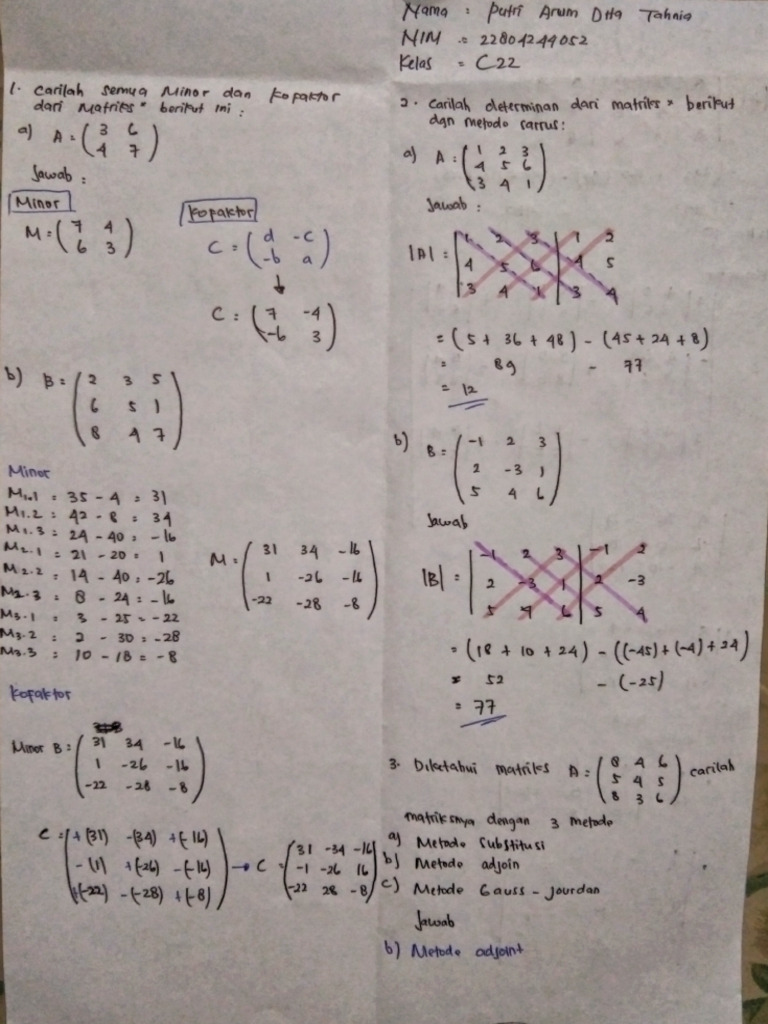 Nama : Putri Arum Dita Tahnia
NIM : 22804244052
Kelas = C22
1. Carilah semua Minor dan kofaktor
dari Matriks" berikut ini :
a) A = ( 3 6
4 7 )
Jawab :
Minor
M = ( 7 4
6 3 )
Kofaktor
C = ( d -c
-b a )
↓
C = ( 7 -4
-6 3 )
b) B = ( 2 3 5
6 5 1
8 4 7 )
Minor
M1.1 = 35 - 4 = 31
M1.2 = 42 - 8 = 34
M1.3 = 24 - 40 = -16
M2.1 = 21 - 20 = 1
M2.2 = 14 - 40 = -26
M2.3 = 8 - 24 = -16
M3.1 = 3 - 25 = -22
M3.2 = 2 - 30 = -28
M3.3 = 10 - 18 = -8
M = ( 31 34 -16
1 -26 -16
-22 -28 -8 )
Kofaktor
Minor B = ( 31 34 -16
1 -26 -16
-22 -28 -8 )
C = ( +(31) -(34) +(-16)
-(1) +(-26) -(-16)
+(-22) -(-28) +(-8) ) → C = ( 31 -34 -16
-1 -26 16
-22 28 -8 )
2. Carilah determinan dari matriks" berikut
dgn metode sarrus :
a) A = ( 1 2 3
4 5 6
3 4 1 )
Jawab :
|A| = | 1 2 3 | 1 2
4 5 6 | 4 5
3 4 1 | 3 4
= (5 + 36 + 48) - (45 + 24 + 8)
= 89 - 77
= 12
b) B = ( -1 2 3
2 -3 1
5 4 6 )
Jawab
|B| = | -1 2 3 | -1 2
2 -3 1 | 2 -3
5 4 6 | 5 4
= (18 + 10 + 24) - ((-45) + (-4) + 24)
= 52 - (-25)
= 77
3. Diketahui matriks A = ( 8 4 6
5 4 5
8 3 6 ) carilah
matriksnya dengan 3 metode
a) Metode Substitusi
b) Metode adjoin
c) Metode Gauss - Jourdan
Jawab
b) Metode adjoint